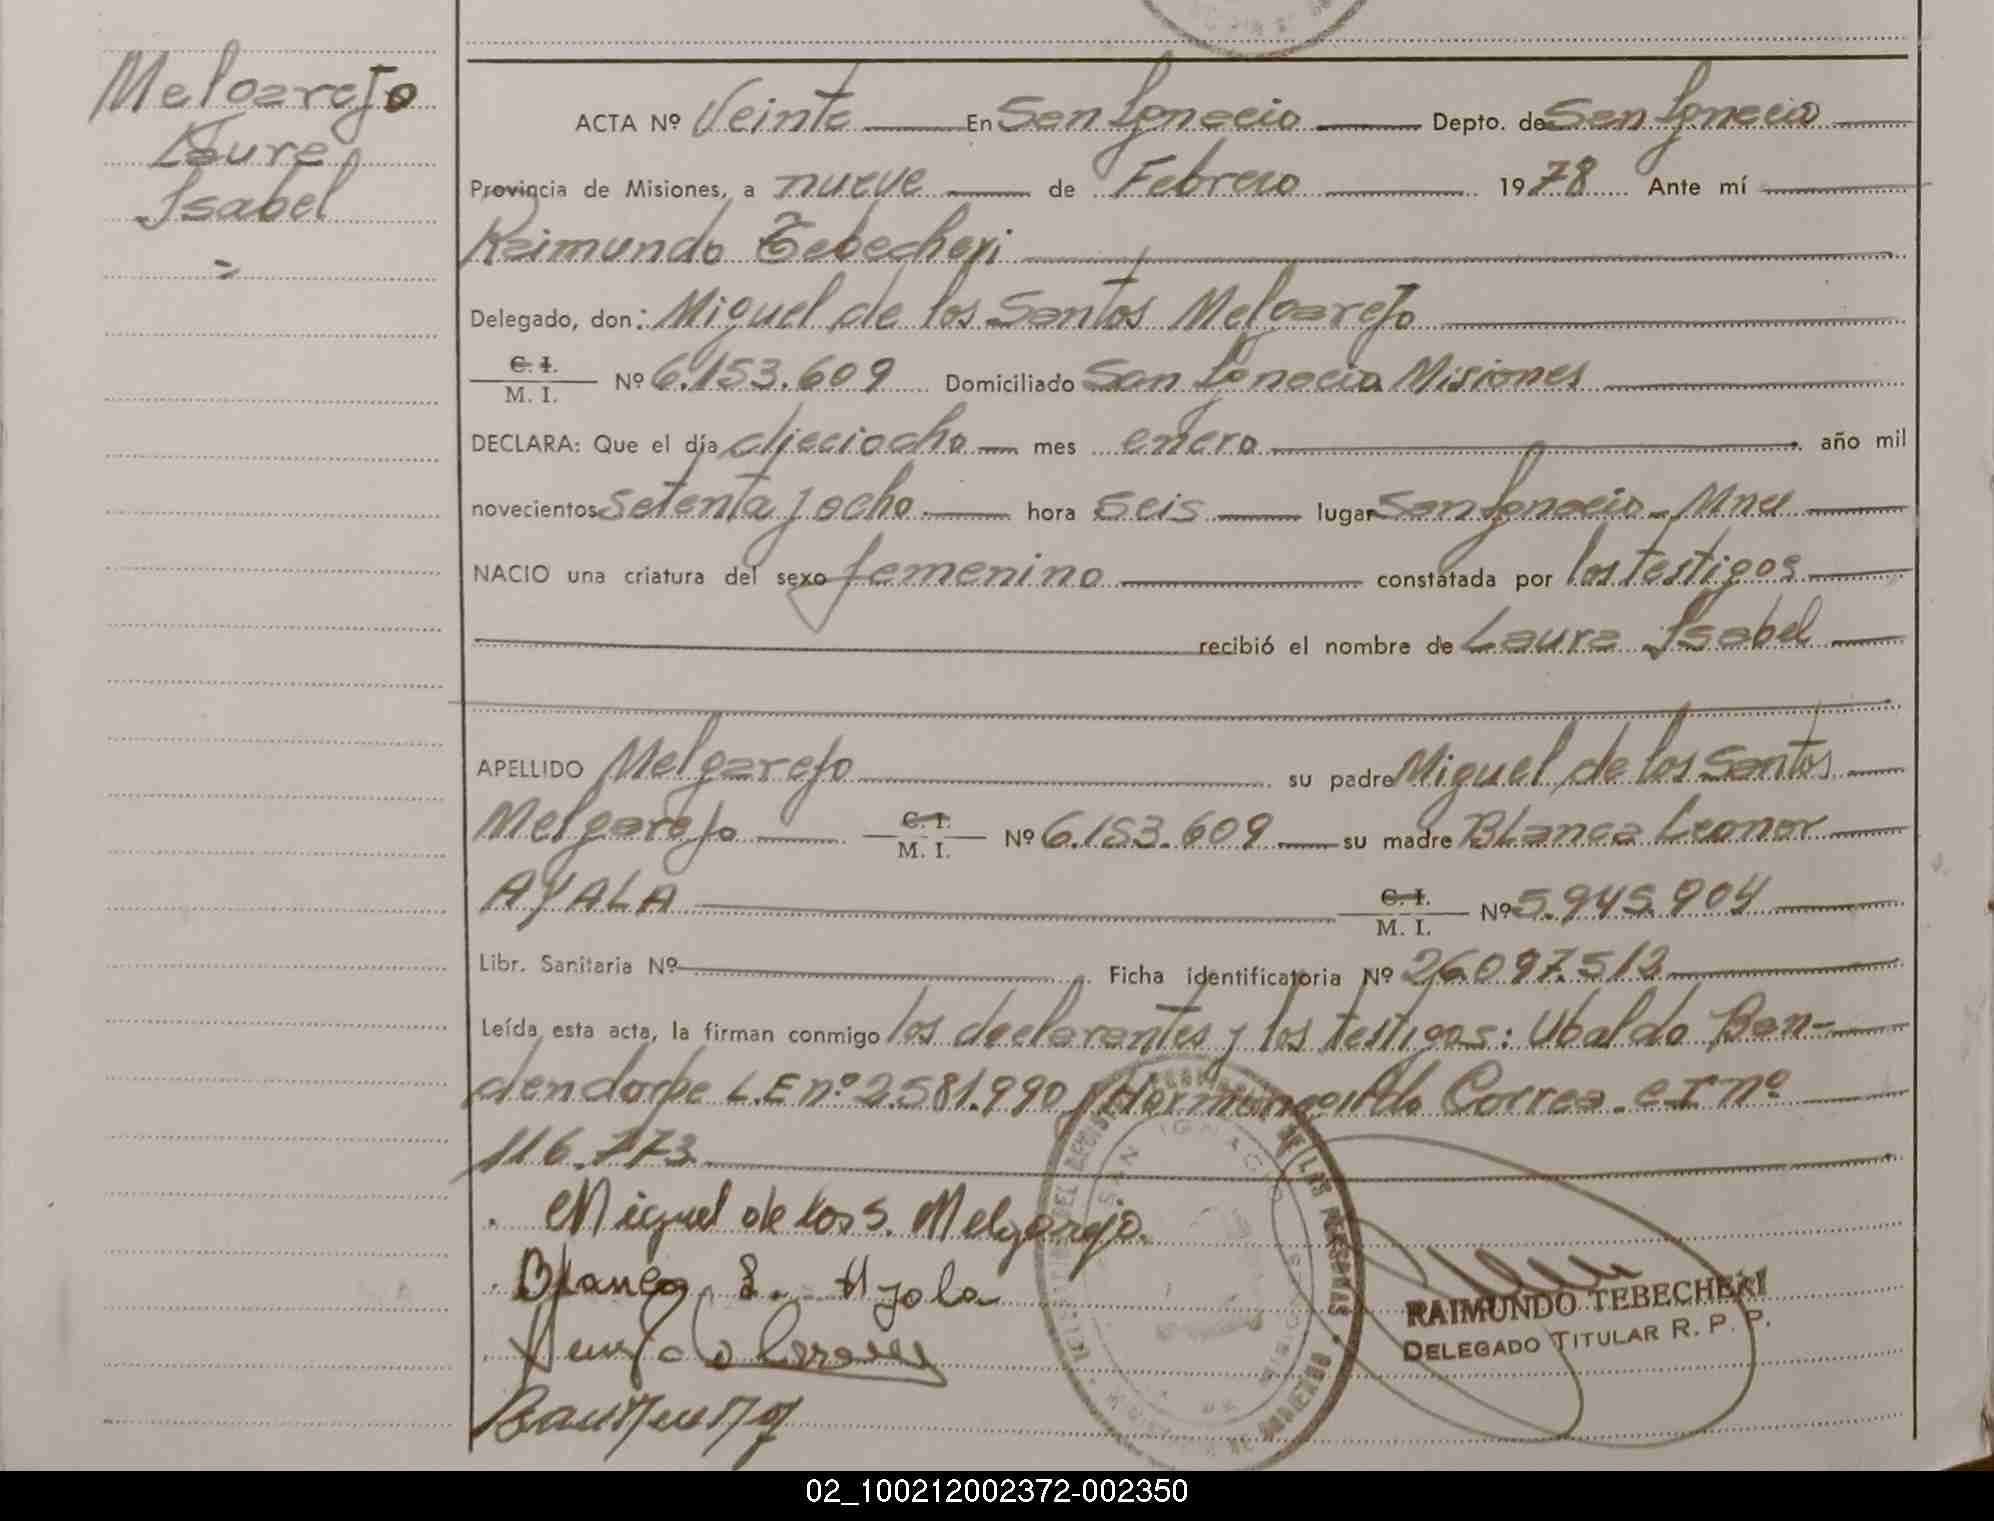 Melgarejo
Laura
Isabel
=
ACTA Nº Veinte En San Ignacio Depto. de San Ignacio
Provincia de Misiones, a nueve de Febrero 1978 Ante mí
Raimundo Tebecheri
Delegado, don: Miguel de los Santos Melgarejo
C. I.
M. I. Nº 6.153.609 Domiciliado San Ignacio Misiones
DECLARA: Que el día dieciocho mes enero año mil
novecientos setenta y ocho hora seis lugar San Ignacio - Mnes
NACIO una criatura del sexo femenino constatada por los testigos
recibió el nombre de Laura Isabel
APELLIDO Melgarejo su padre Miguel de los Santos
Melgarejo C. I. M. I. Nº 6.153.609 su madre Blanca Leonor
AYALA C. I. M. I. Nº 5.945.904
Libr. Sanitaria Nº Ficha identificatoria Nº 26.097.512
Leída esta acta, la firman conmigo los declarantes y los testigos: Ubaldo Ban-
dendorpe L.E nº 2.581.990 y Hermenegildo Correa C I nº
116.773
Miguel de los S. Melgarejo.
Blanca L. Ayala
RAIMUNDO TEBECHERI
DELEGADO TITULAR R. P. P.
SAN IGNACIO
DE LAS PERSONAS
02_100212002372-002350